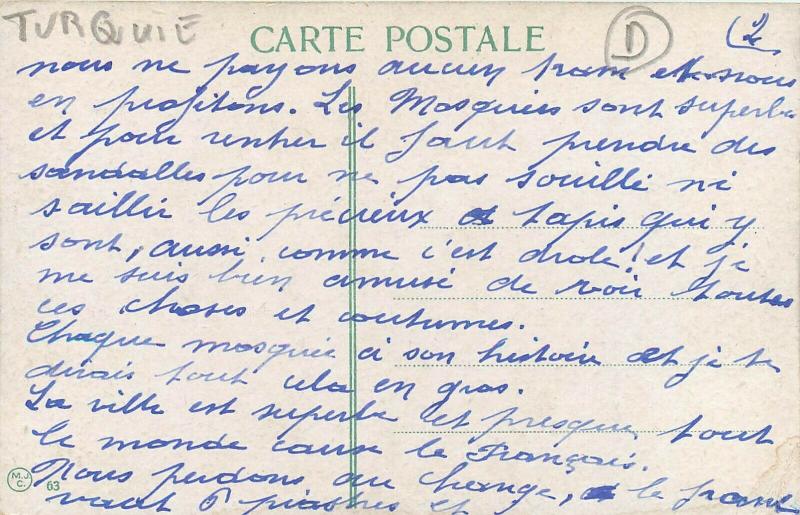 TURQUIE
CARTE POSTALE
D
2
nous ne payons aucun tram et nous
en profitons. Les Mosquées sont superbe
et pour rentrer il faut prendre des
sandalles pour ne pas souillé ni
saillir les précieux tapis qui y
sont, aussi, comme c'est drole! et je
me suis bien amusé de voir toutes
ces choses et coutumes.
Chaque mosquée a son histoire et je te
dirais tout cela en gros.
La ville est superbe et presque tout
le monde cause le Français.
Nous perdons au change, le franc
vaut 6 piastres et
M.J.C.
63